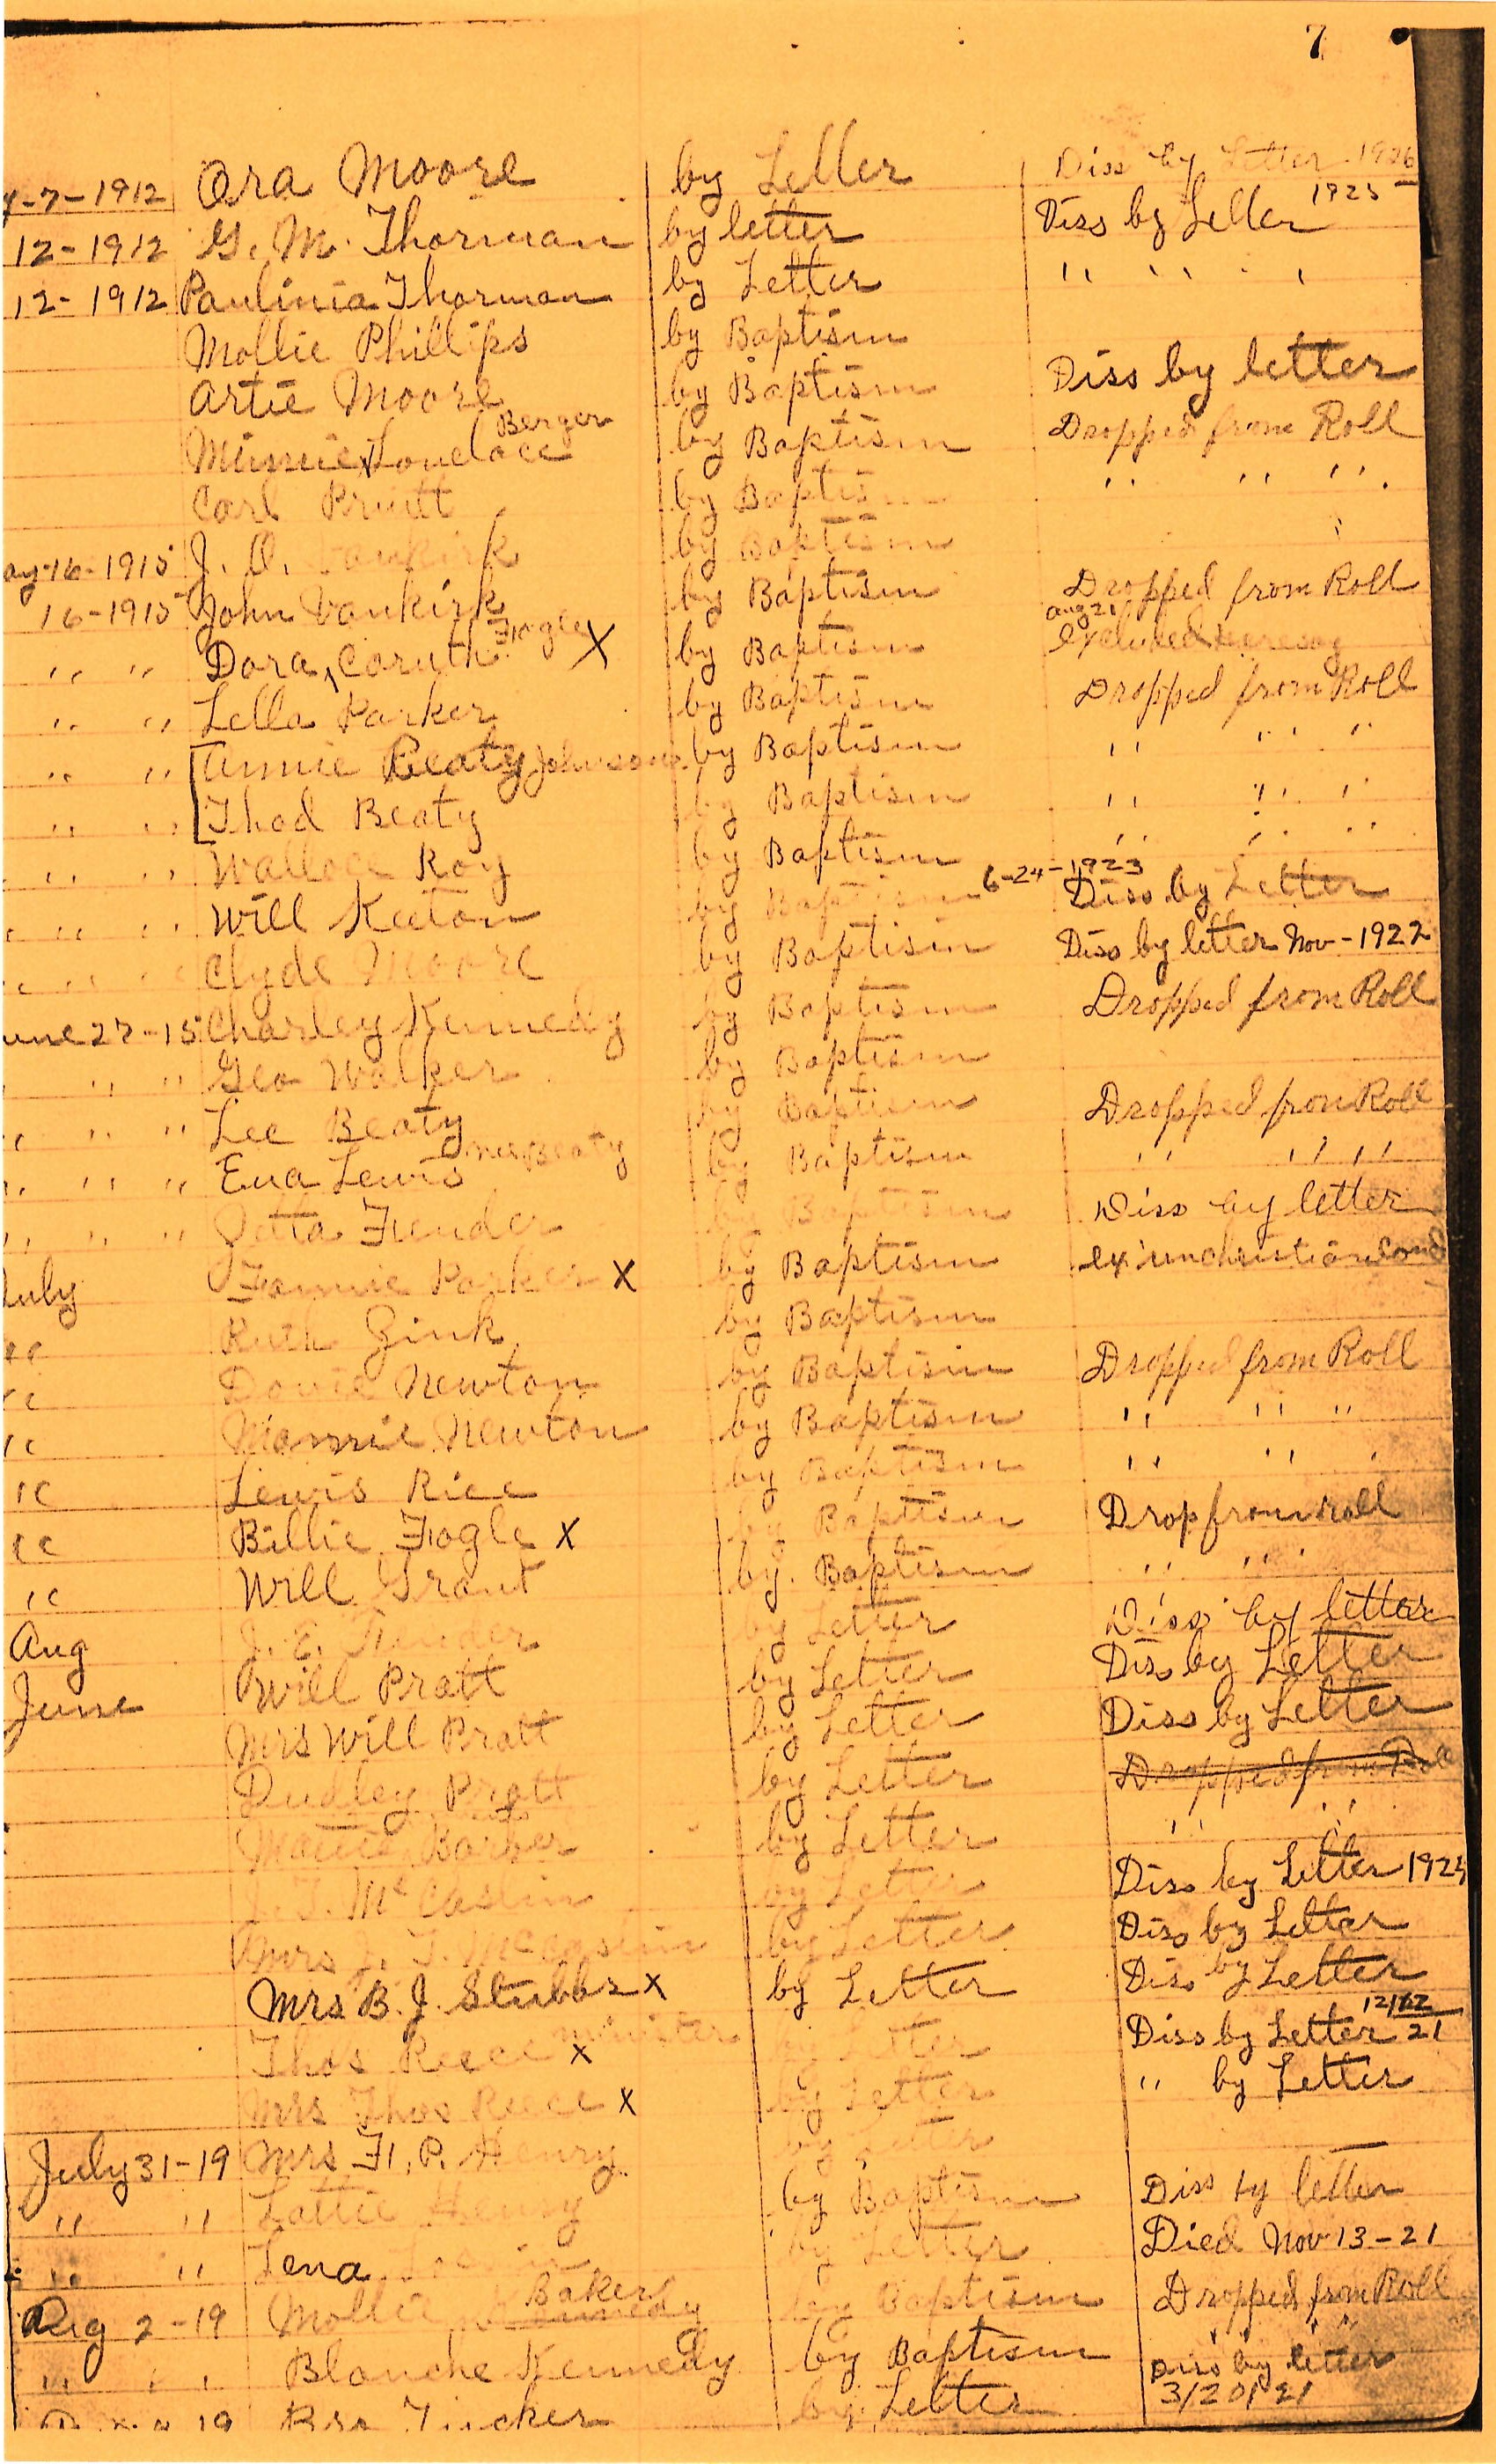 7
-7-1912 Ora Moore by Letter Diss by Letter 1926
12-1912 G. M. Thorman by letter Diss by Letter 1925
12-1912 Paulinia Thorman by Letter " " " "
Mollie Phillips by Baptism
Artie Moore by Baptism Diss by letter
Minnie Lovelace Berger by Baptism Dropped from Roll
Carl Pruitt by Baptism " " "
ay-16-1915 J. O. Vankirk by Baptism
16-1915 John Vankirk by Baptism Dropped from Roll
" " Dora Coruth Fogle X by Baptism Aug 21 Excluded
" " Lella Parker by Baptism Dropped from Roll
" " Annie Beaty Johnson by Baptism " " "
" " Thad Beaty by Baptism " " "
" " Wallace Roy by Baptism " " "
" " Will Keeton by Baptism 6-24-1923 Diss by Letter
" " Clyde Moore by Baptism Diss by letter Nov-1922
une 27-15 Charley Kennedy by Baptism Dropped from Roll
" " Geo Walker by Baptism
" " " Lee Beaty by Baptism Dropped from Roll
" " " Eva Lewis Mrs Beaty by Baptism " " " "
" " " Fender by Baptism Diss by letter
July Fannie Parker X by Baptism ex unchristian cond
" Ruth Zink by Baptism
" Dovie Newton by Baptism Dropped from Roll
" Mannie Newton by Baptism " " "
" Lewis Rice by Baptism " " "
" Billie Fogle X by Baptism Drop from roll
" Will Grant by Baptism " " "
Aug J. E. Fender by Letter Diss by letter
June Will Pratt by Letter Diss by Letter
Mrs Will Pratt by Letter Diss by Letter
Dudley Pratt by Letter Dropped from Roll
Mattie Barber by Letter " "
J. T. McCaslin by Letter Diss by Letter
Mrs J. T. McCaslin by Letter Diss by Letter
Mrs B. J. Stubbs X by Letter Diss by Letter
Thos Reece minister X by Letter Diss by Letter 21
Mrs Thos Reece X by Letter " by Letter
July 31-19 Mrs F. P. Henry by Letter
" " Lottie Henry by Baptism Diss by letter
" " Lena by Letter Died Nov 13-21
Aug 2-19 Mollie Kennedy Baker by Baptism Dropped from Roll
" " " Blanche Kennedy by Baptism " "
19 Bro Tucker by Letter Diss by letter
3/20/21